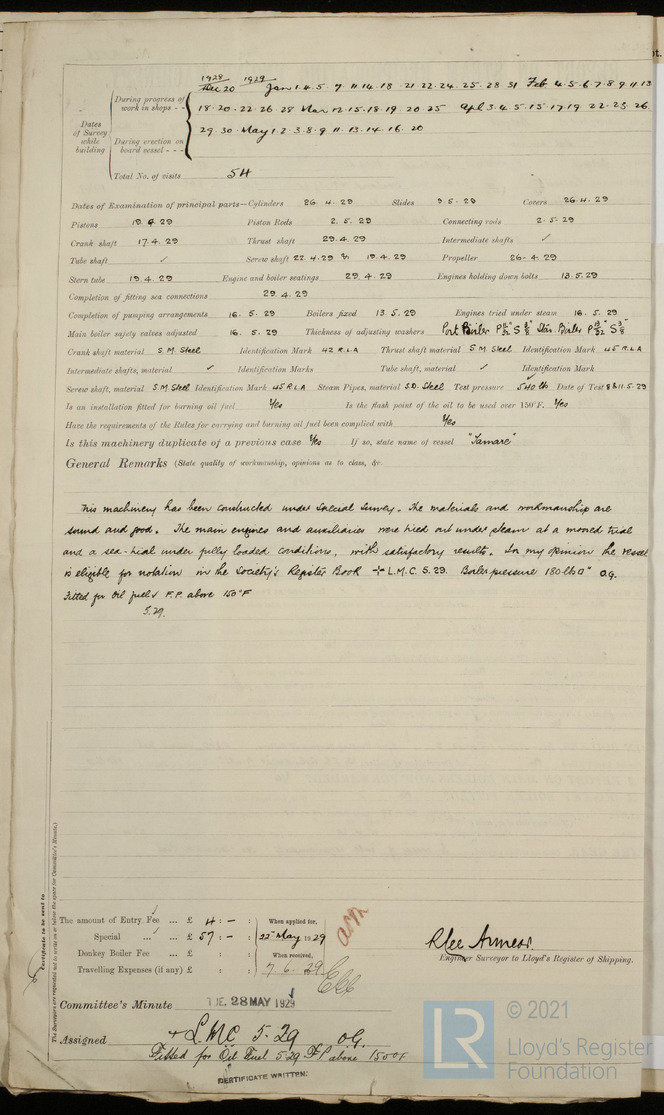 1928 1929
Dec 20 Jan 1.4.5.7.11.14.18.21.22.24.25.28.31 Feb 4.5.6.7.8.9.11.13
During progress of work in shops - -
18.20.22.26.28 Mar 12.15.18.19.20.25 Apl 3.4.5.15.17.19.22.23.26
Dates of Survey while building
29.30. May 1.2.3.8.9.11.13.14.16.20
During erection on board vessel - - -
Total No. of visits 54
Dates of Examination of principal parts—Cylinders 26.4.29 Slides 9.5.29 Covers 26.4.29
Pistons 19.4.29 Piston Rods 2.5.29 Connecting rods 2.5.29
Crank shaft 17.4.29 Thrust shaft 29.4.29 Intermediate shafts ✓
Tube shaft ✓ Screw shaft 22.4.29 19.4.29 Propeller 26.4.29
Stern tube 19.4.29 Engine and boiler seatings 29.4.29 Engines holding down bolts 13.5.29
Completion of fitting sea connections 29.4.29
Completion of pumping arrangements 16.5.29 Boilers fixed 13.5.29 Engines tried under steam 16.5.29
Main boiler safety valves adjusted 16.5.29 Thickness of adjusting washers Port Boiler P 11/32 S 3/8 Star Boiler P 13/32 S 3/8
Crank shaft material S.M. Steel Identification Mark 42 R.L.A Thrust shaft material S.M. Steel Identification Mark 45 R.L.A
Intermediate shafts, material ✓ Identification Marks Tube shaft, material ✓ Identification Mark ✓
Screw shaft, material S.M. Steel Identification Mark 45 R.L.A Steam Pipes, material S.D. Steel Test pressure 540 lb Date of Test 8 & 11.5.29
Is an installation fitted for burning oil fuel Yes Is the flash point of the oil to be used over 150°F. Yes
Have the requirements of the Rules for carrying and burning oil fuel been complied with Yes
Is this machinery duplicate of a previous case Yes If so, state name of vessel "Tamare"
General Remarks (State quality of workmanship, opinions as to class, &c.
This machinery has been constructed under Special Survey. The materials and workmanship are
sound and good. The main engines and auxiliaries were tried out under steam at a moored trial
and a sea-trial under fully loaded conditions, with satisfactory results. In my opinion the vessel
is eligible for notation in the Society's Register Book + L.M.C. 5.29. Boiler pressure 180 lbs □" O.G.
Fitted for Oil fuel F.P. above 150°F
5.29.
Certificate to be sent to
(The Surveyors are requested not to write on or below the space for Committee's Minute.)
The amount of Entry Fee ... £ 4 : - :
Special ... £ 57 : - :
Donkey Boiler Fee ... £ : :
Travelling Expenses (if any) £ : :
When applied for, 22nd May 1929
When received, 7.6.29
Engineer Surveyor to Lloyd's Register of Shipping.
Committee's Minute TUE. 28 MAY 1929
Assigned + L.M.C. 5.29 O.G.
Fitted for Oil Fuel 5.29 F.P. above 150°F
CERTIFICATE WRITTEN.
LR © 2021
Lloyd's Register
Foundation